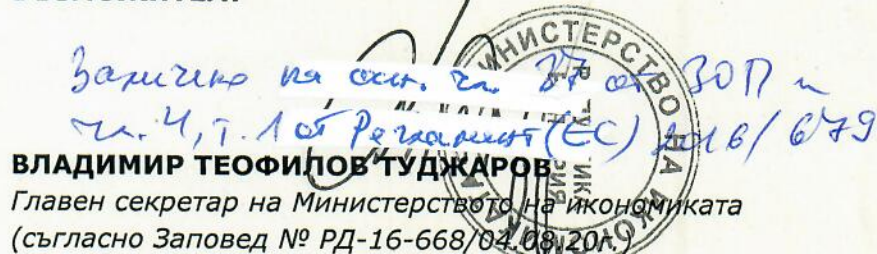 Заличено на осн. чл. 37 от ЗОП и
чл. 4, т. 1 от Регламент (ЕС) 2016/679
ВЛАДИМИР ТЕОФИЛОВ ТУДЖАРОВ
Главен секретар на Министерството на икономиката
(съгласно Заповед № РД-16-668/04.08.20г.)
МИНИСТЕРСТВО НА ИКОНОМИКАТА